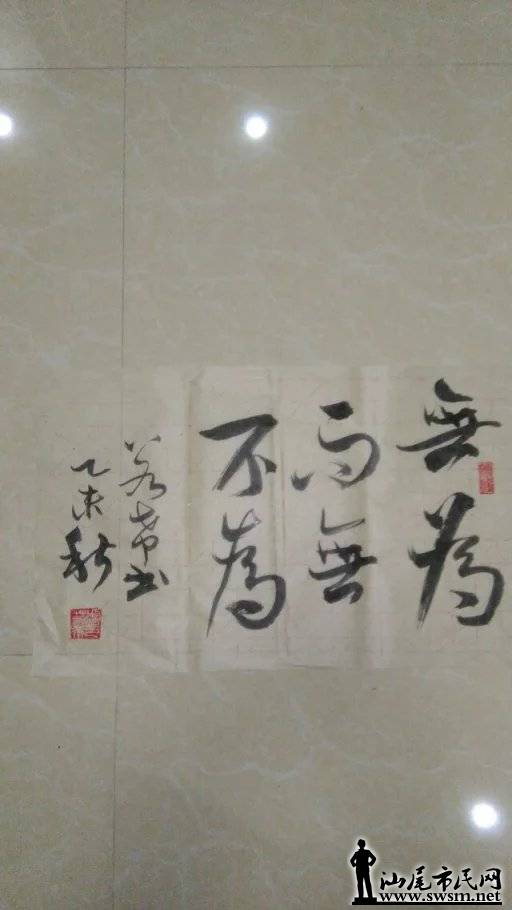 無為
而無
不為
乙未秋
汕尾市民网
www.swsm.net